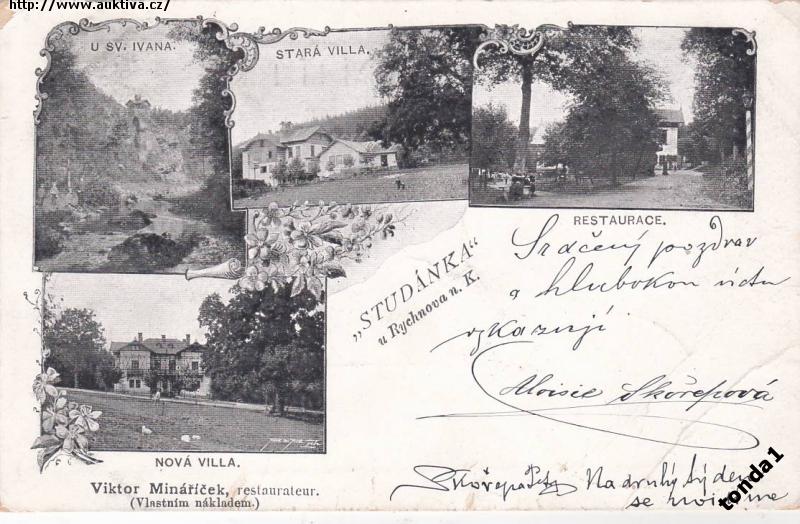 zdroj: www.auktiva.cz/
U SV. IVANA.
STARÁ VILLA.
RESTAURACE.
„STUDÁNKA“
u Rychnova n. K.
Srdčený pozdrav
a hlubokou úctu
vykazují
Aloisie Skořepová
NOVÁ VILLA.
Viktor Minářiček, restaurateur.
(Vlastním nákladem.)
Na druhý týden
se
tonda1